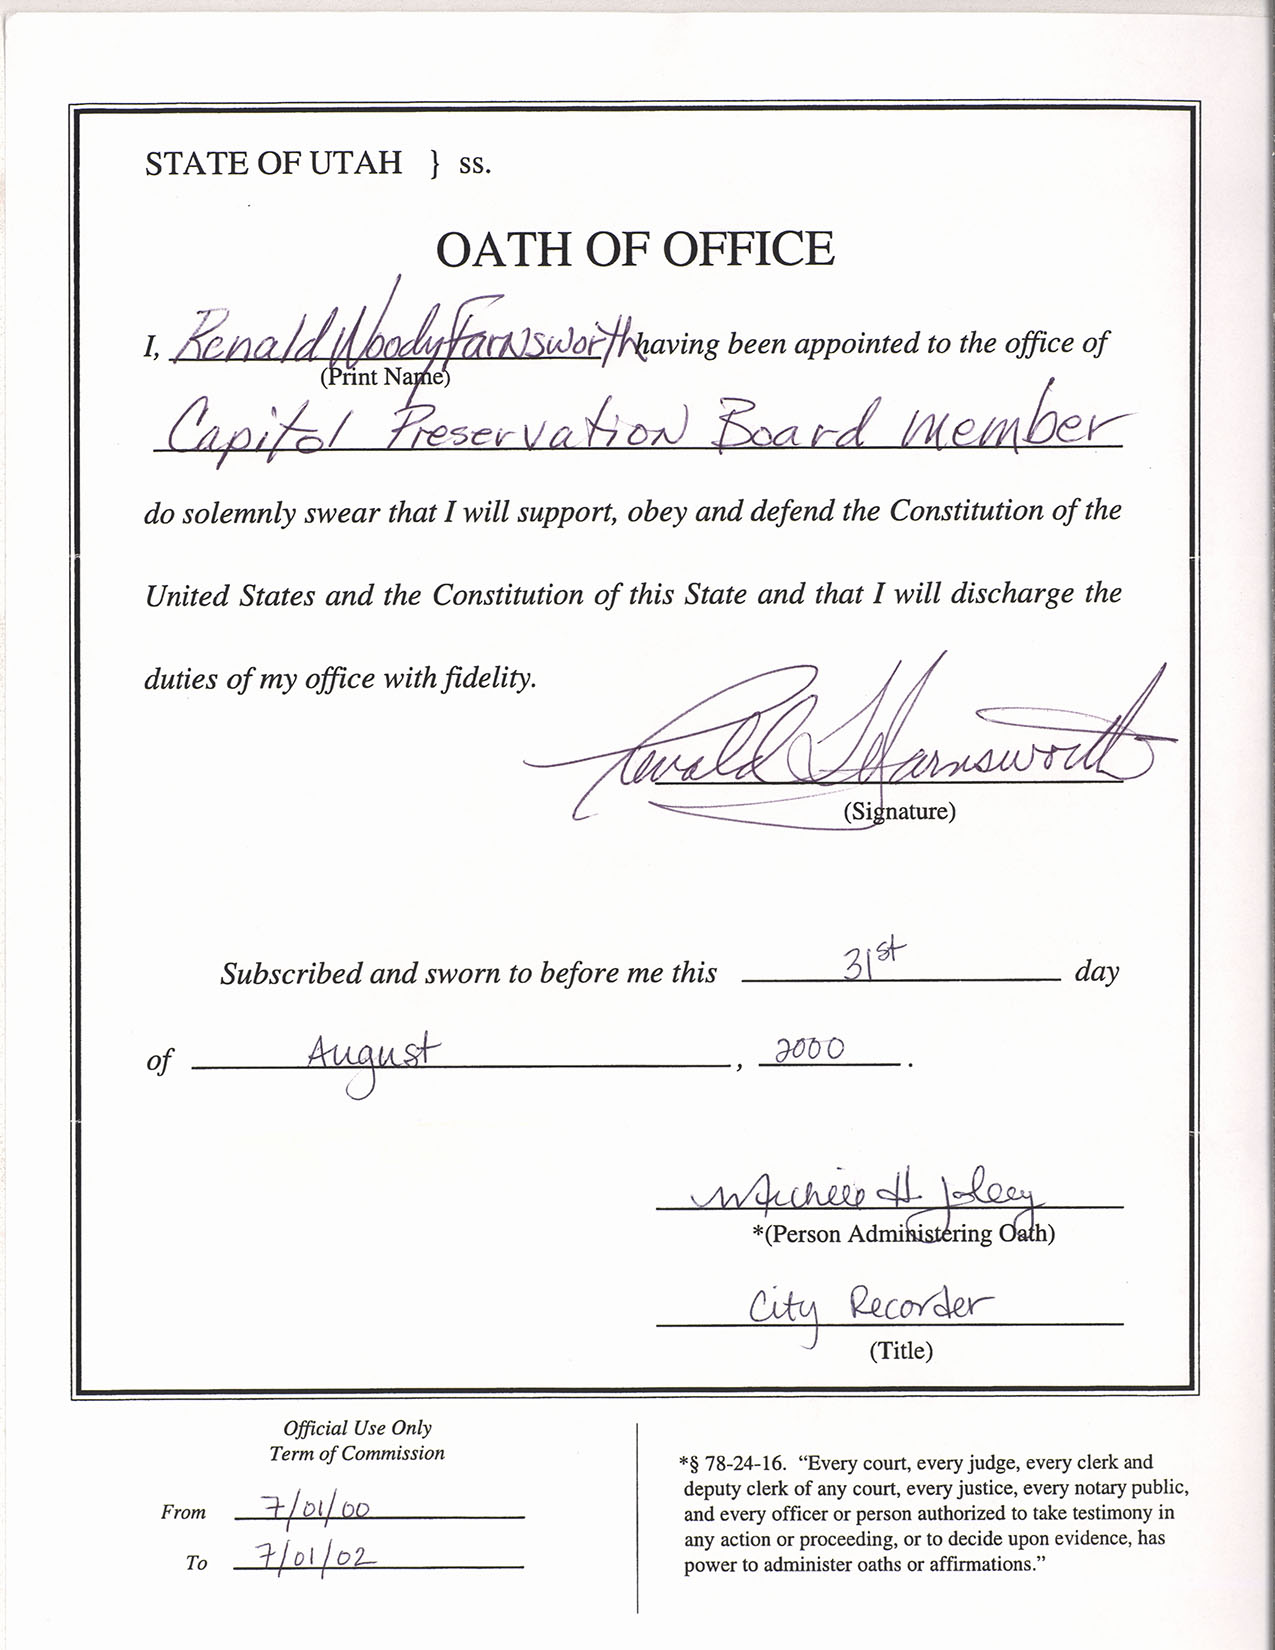 STATE OF UTAH } ss.
OATH OF OFFICE
I, Renald Woody Farnsworth having been appointed to the office of
(Print Name)
Capitol Preservation Board member
do solemnly swear that I will support, obey and defend the Constitution of the
United States and the Constitution of this State and that I will discharge the
duties of my office with fidelity.
Farnsworth
(Signature)
Subscribed and sworn to before me this 31st day
of August, 2000.
H.
*(Person Administering Oath)
City Recorder
(Title)
Official Use Only
Term of Commission
From 7/01/00
To 7/01/02
*§ 78-24-16. “Every court, every judge, every clerk and
deputy clerk of any court, every justice, every notary public,
and every officer or person authorized to take testimony in
any action or proceeding, or to decide upon evidence, has
power to administer oaths or affirmations.”